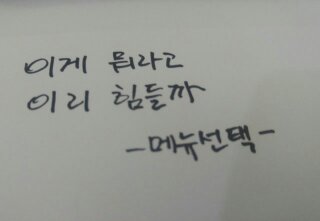 이게 뭐라고
이리 힘들까
-메뉴선택-